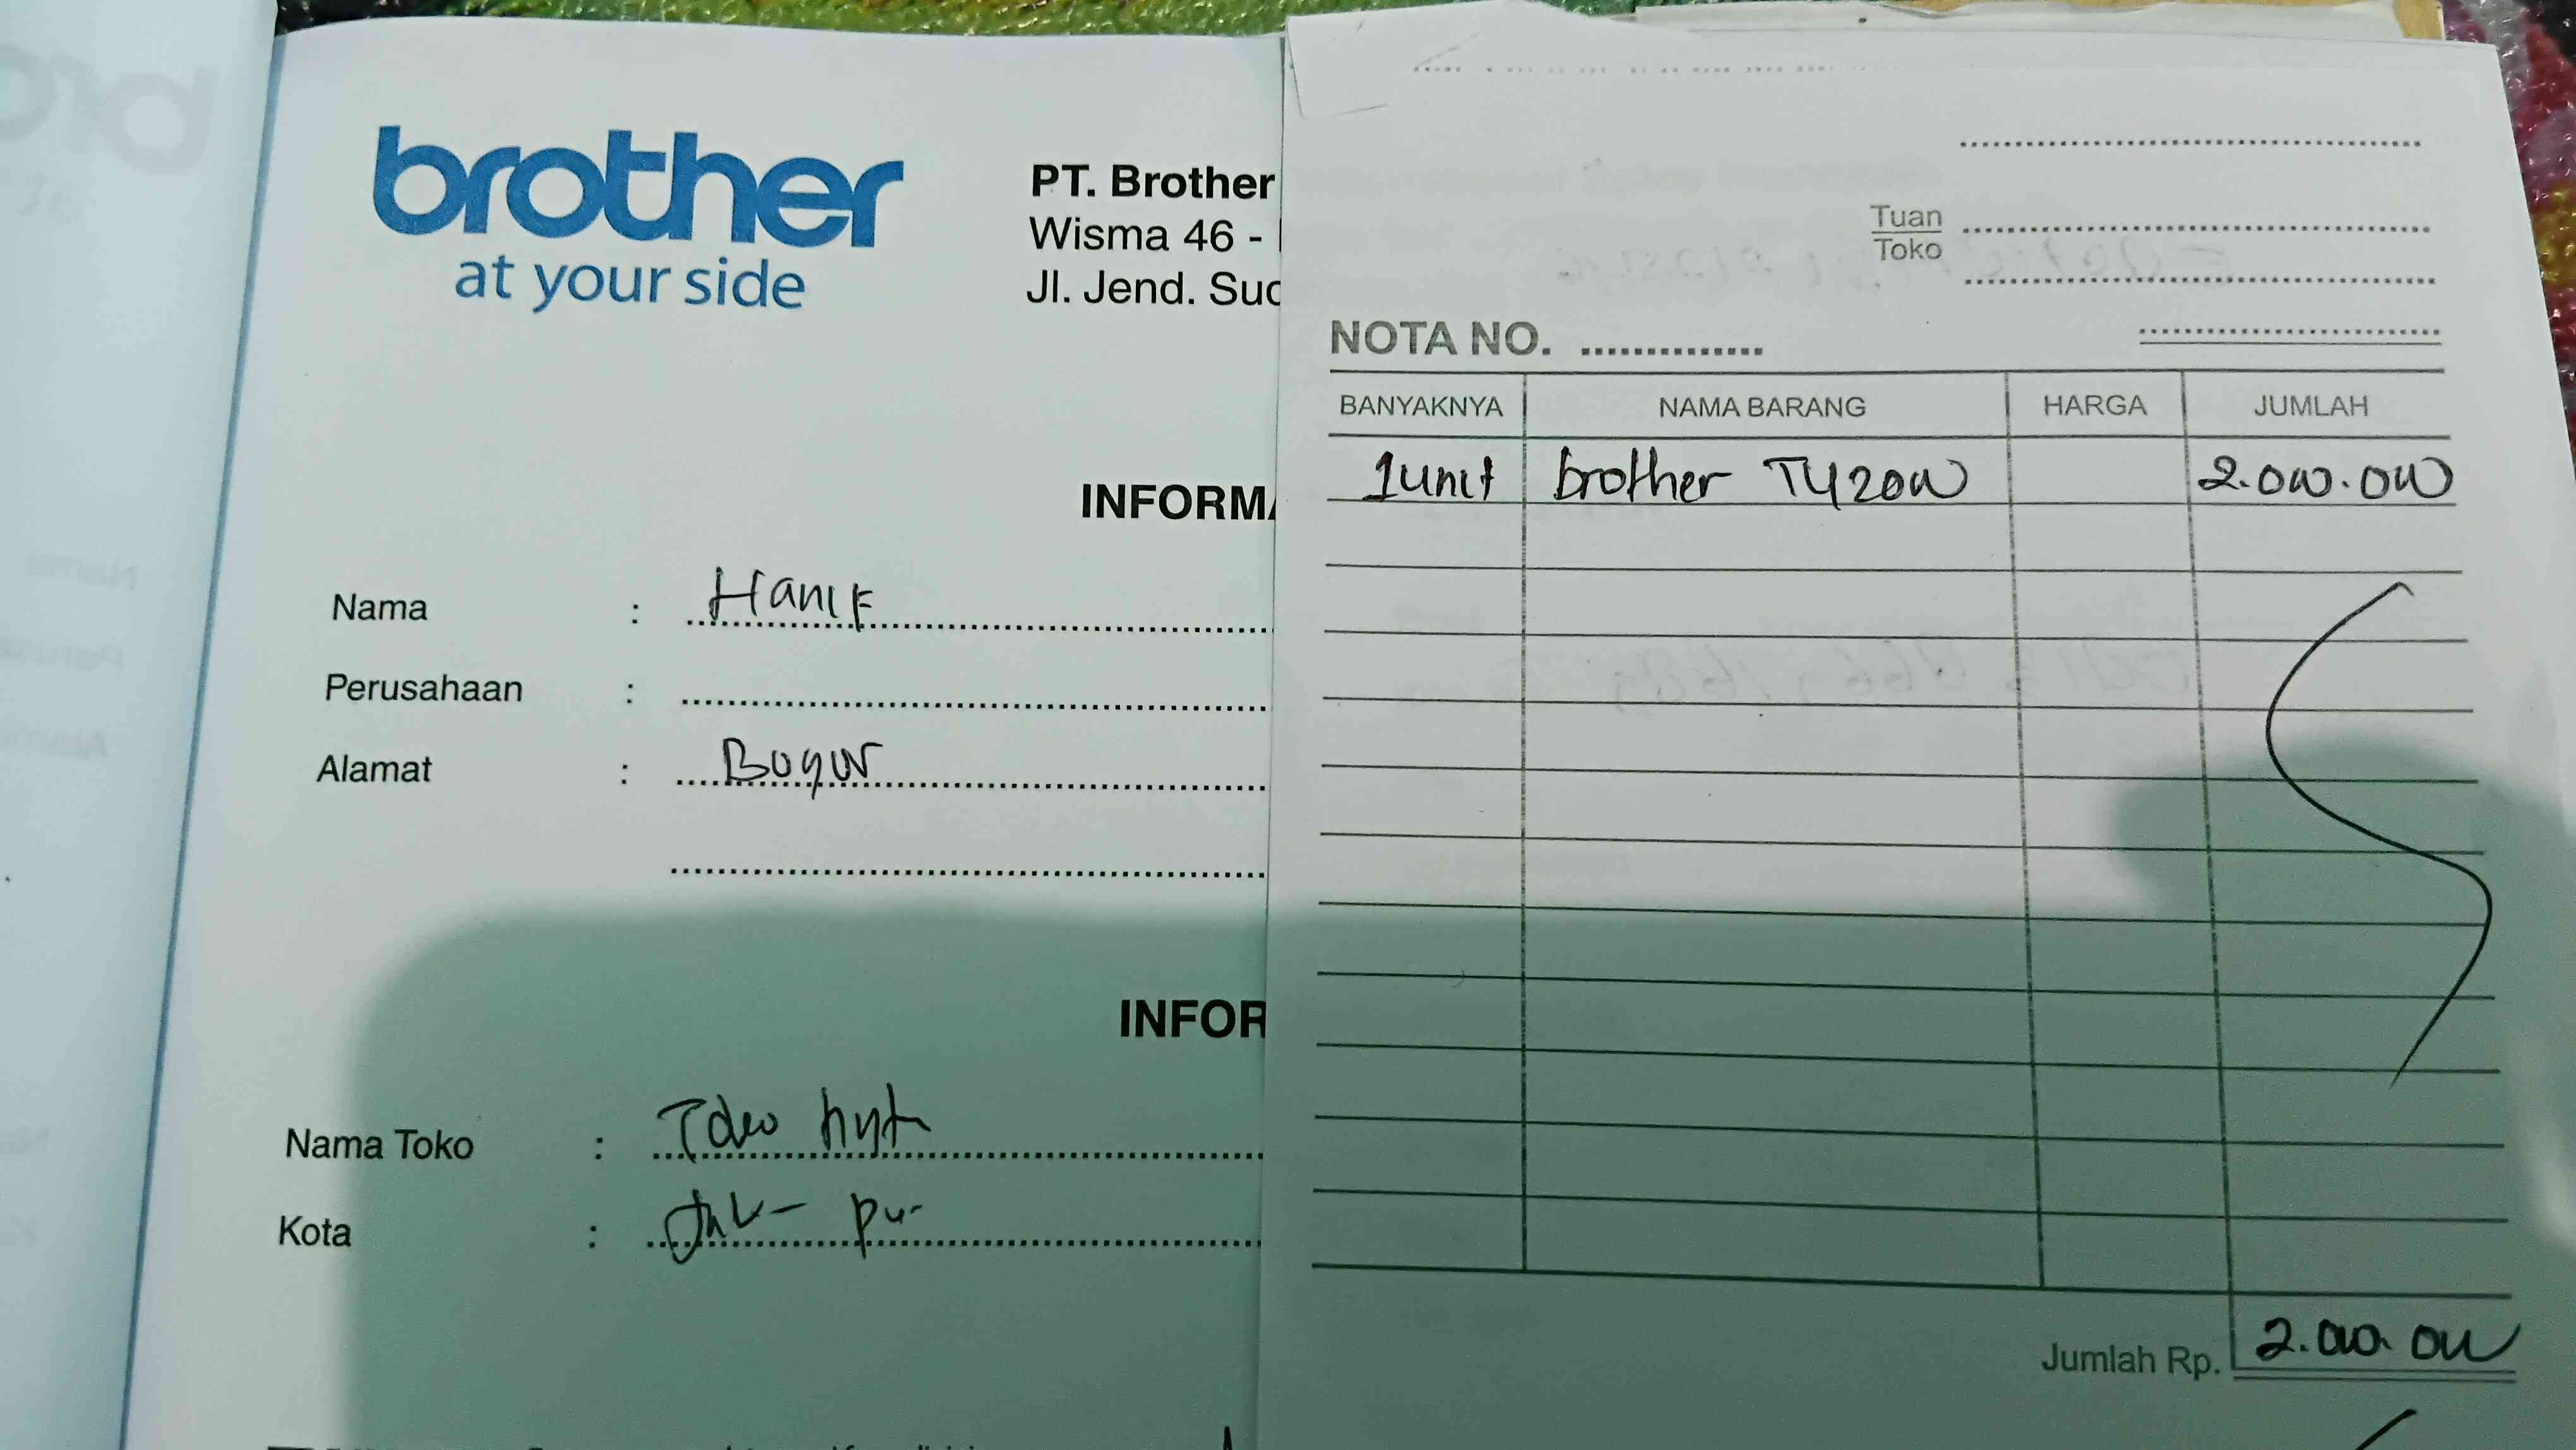 brother
at your side
PT. Brother
Wisma 46 -
Jl. Jend. Sud
INFORMA
Nama : Hanif
Perusahaan :
Alamat : Bogor
INFOR
Nama Toko :
Kota :
Tuan
Toko
NOTA NO.
BANYAKNYA NAMA BARANG HARGA JUMLAH
1 unit brother T420W 2.000.000
Jumlah Rp. 2.000.000